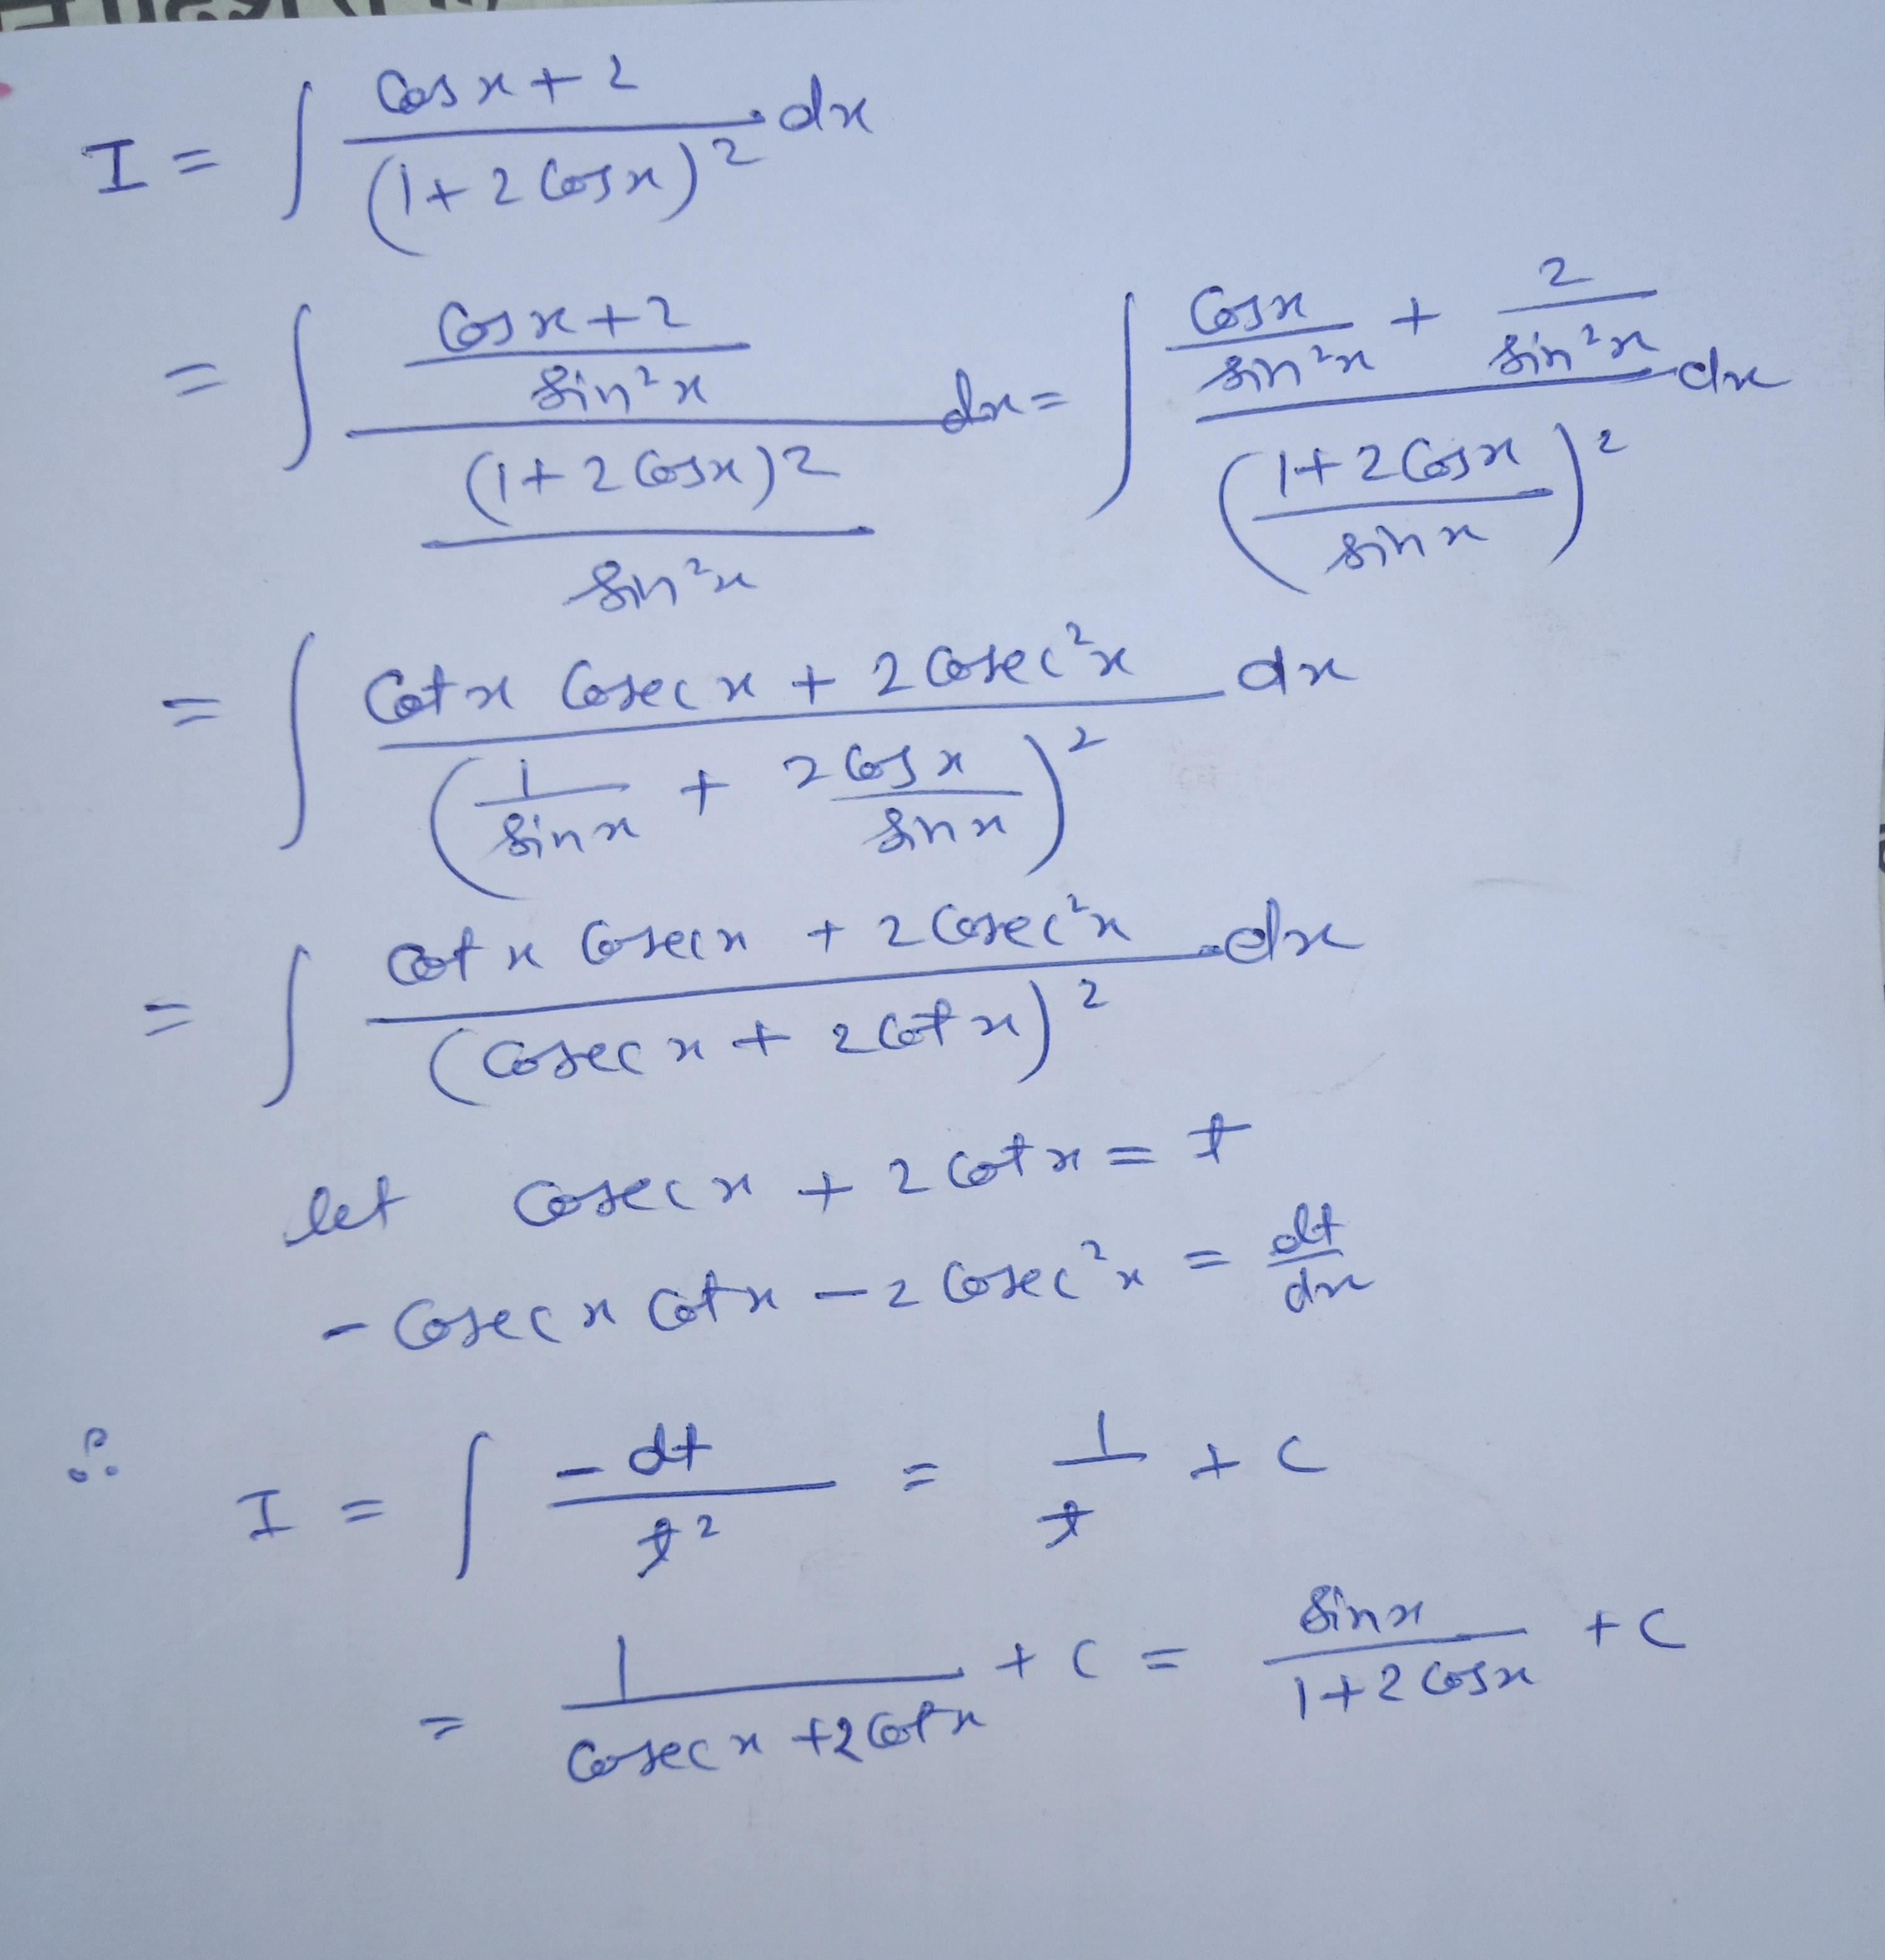 I = ∫ (Cos x + 2)/(1 + 2 Cos x)² . dx
= ∫ ((Cos x + 2)/(sin² x))/((1 + 2 Cos x)²/(sin² x)) dx = ∫ ((Cos x)/(sin² x) + 2/(sin² x))/((1 + 2 Cos x)/(sin x))² dx
= ∫ (Cot x Cosec x + 2 Cosec² x)/(1/(sin x) + (2 Cos x)/(sin x))² dx
= ∫ (Cot x Cosec x + 2 Cosec² x)/(Cosec x + 2 Cot x)² . dx
let Cosec x + 2 Cot x = t
- Cosec x Cot x - 2 Cosec² x = dt/dx
∴ I = ∫ (- dt)/(t²) = 1/t + c
= 1/(Cosec x + 2 Cot x) + c = (sin x)/(1 + 2 Cos x) + c